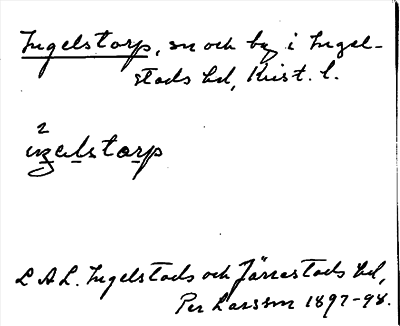 Ingelstorp, sn och by i Ingel-
stads hd, Krist. l.
2
iŋəlstorp
L A L. Ingelstads och Järrestads hd,
Per Larsson 1897-98.